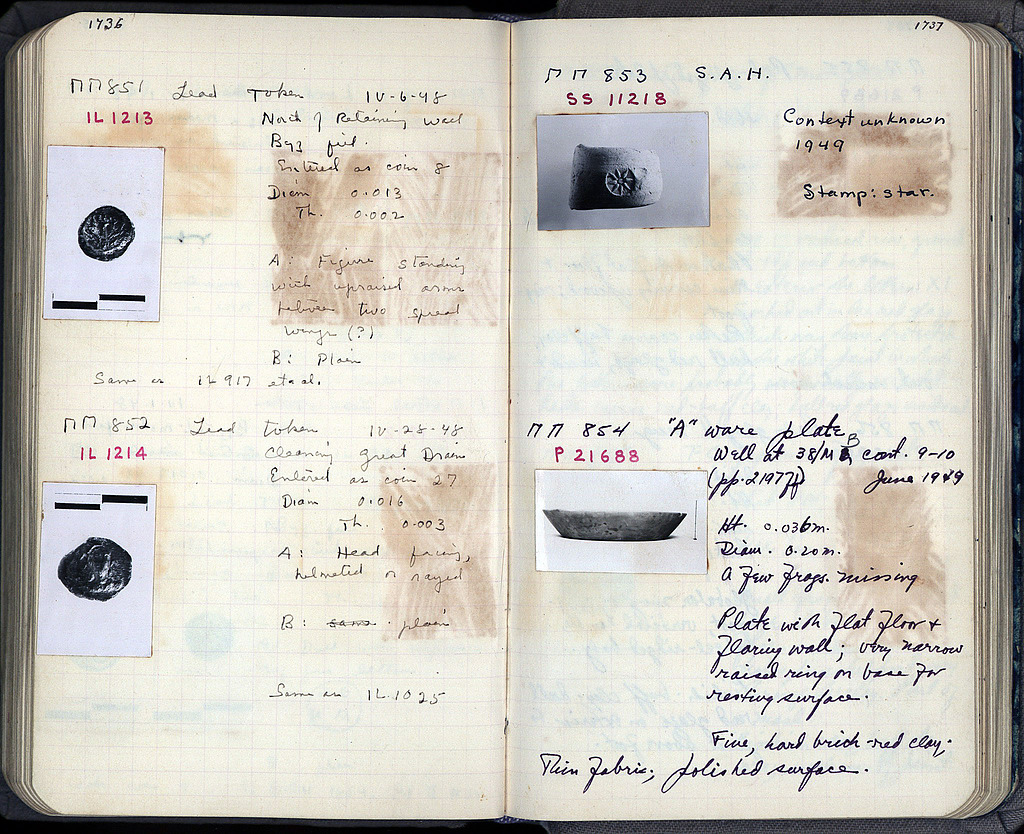 1736
ΠΠ 851 Lead Token IV-6-48
IL 1213
North of Retaining wall
Byz fill.
Entered as coin 8
Diam 0.013
Th. 0.002
A: Figure standing
with upraised arms
between two spread
wings (?)
B: Plain
Same as IL 917 et al.
ΠΠ 852 Lead token IV-28-48
IL 1214
Cleaning great Drain
Entered as coin 27
Diam 0.016
Th. 0.003
A: Head facing,
helmeted or rayed
B: same plain
Same as IL 1025
1737
ΠΠ 853 S.A.H.
SS 11218
Context unknown
1949
Stamp: star.
ΠΠ 854 "A" ware plate
P 21688
Well at 38/M cont. 9-10
(pp. 2197ff) June 1949
Ht. 0.036m.
Diam. 0.20m.
A few frags. missing
Plate with flat floor +
flaring wall; very narrow
raised ring on base for
resting surface.
Fine, hard brick-red clay.
Thin fabric; polished surface.